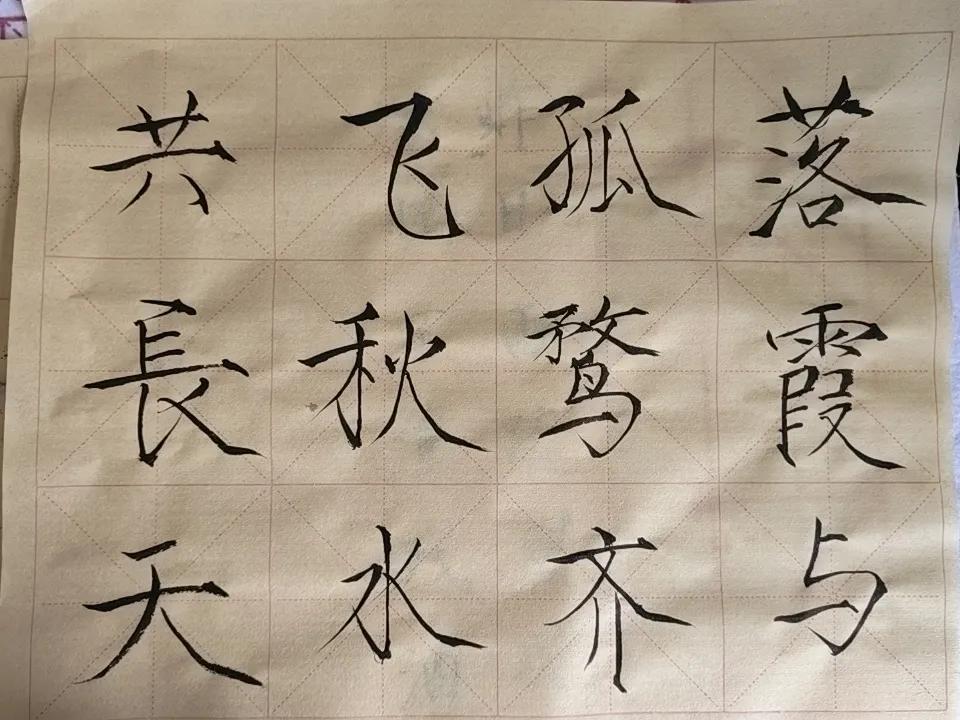 落霞与
孤鹜齐
飞秋水
共長天